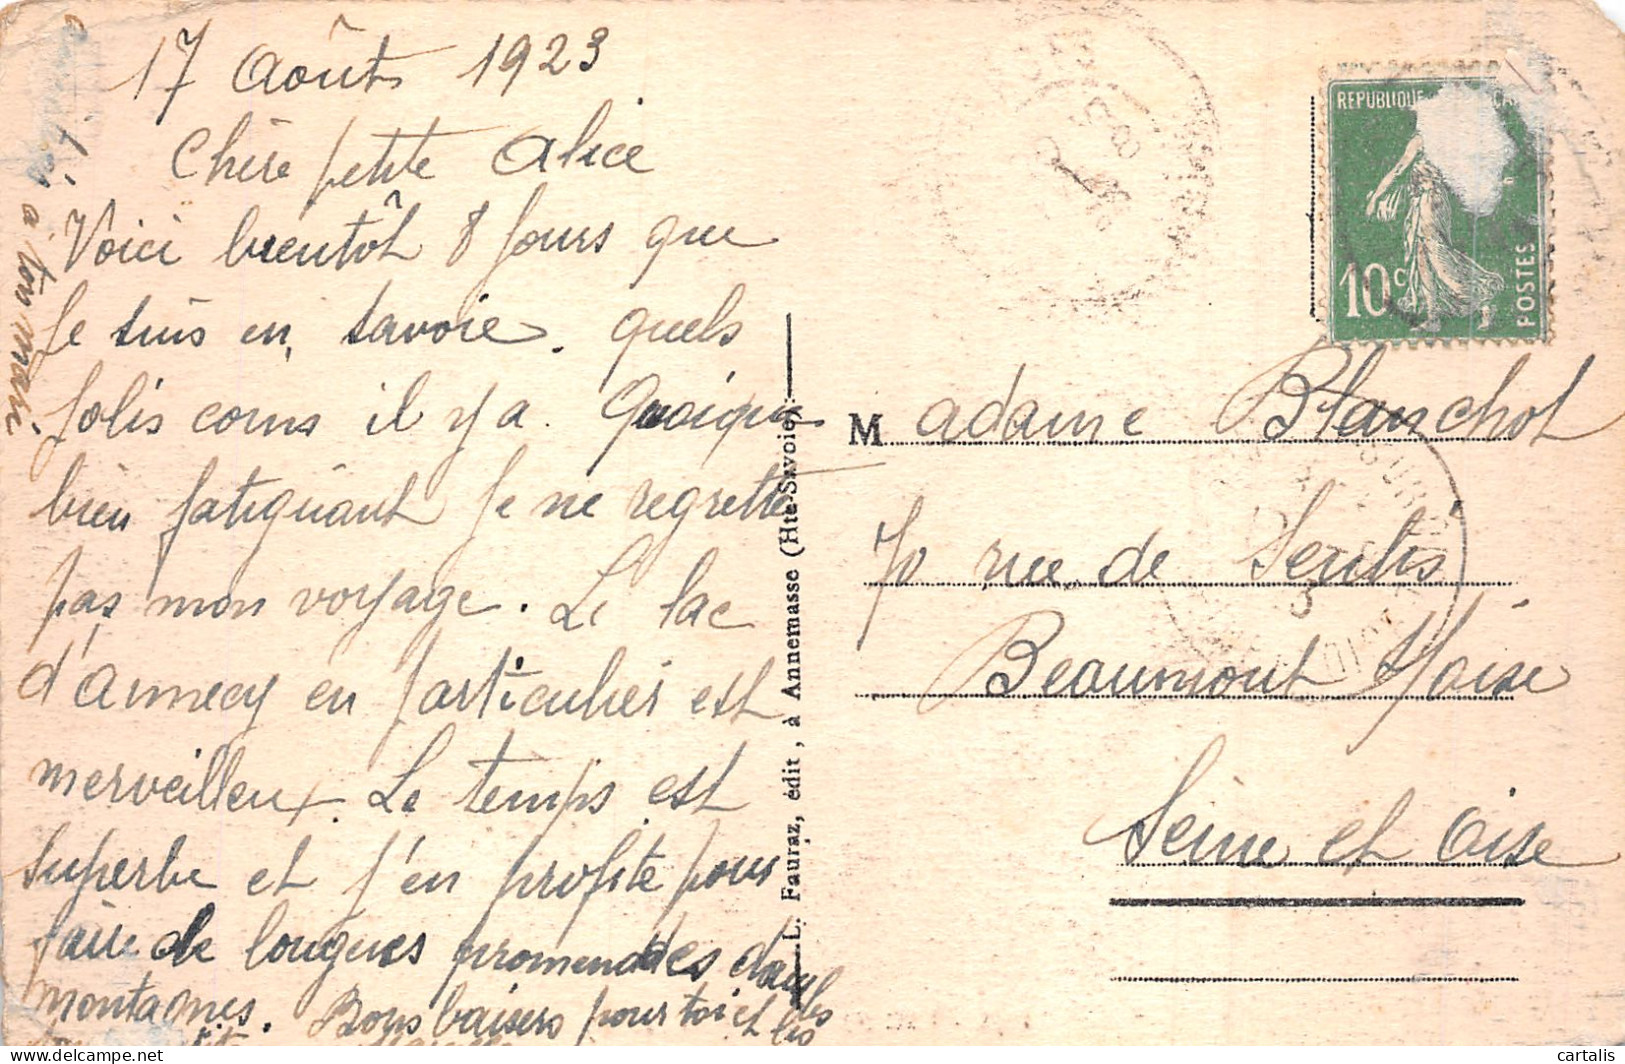 17 Août 1923
Chère petite Alice
Voici bientôt 8 jours que
Je suis en Savoie. quels
jolis coins il y a. Quoique
bien fatiguant Je ne regrette
pas mon voyage. Le lac
d'annecy en particulier est
merveilleux. Le temps est
superbe et j'en profite pour
faire de longues promenades dans les
montagnes. Bons baisers pour toi et les
à ton mari
L. Fauraz, édit, à Annemasse (Hte-Savoie).
REPUBLIQUE
10c
POSTES
Madame Blanchot
70 rue de Senlis
Beaumont s/oise
Seine et Oise
cartalis